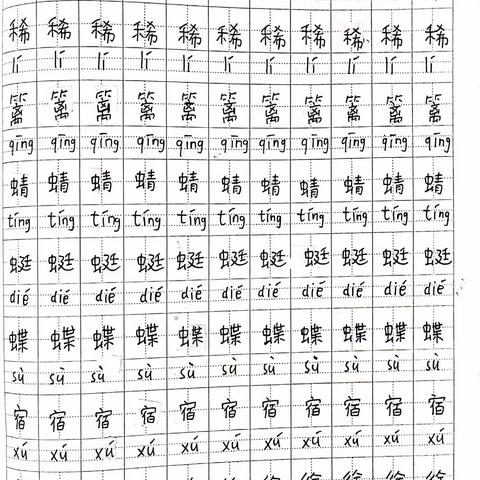 稀 稀 稀 稀 稀 稀 稀 稀 稀 稀 稀
lí lí lí lí lí lí lí lí lí lí lí
篱 篱 篱 篱 篱 篱 篱 篱 篱 篱 篱
qīng qīng qīng qīng qīng qīng qīng qīng qīng qīng qīng
蜻 蜻 蜻 蜻 蜻 蜻 蜻 蜻 蜻 蜻 蜻
tíng tíng tíng tíng tíng tíng tíng tíng tíng tíng tíng
蜓 蜓 蜓 蜓 蜓 蜓 蜓 蜓 蜓 蜓 蜓
dié dié dié dié dié dié dié dié dié dié dié
蝶 蝶 蝶 蝶 蝶 蝶 蝶 蝶 蝶 蝶 蝶
sù sù sù sù sù sù sù sù sù sù sù
宿 宿 宿 宿 宿 宿 宿 宿 宿 宿 宿
xú xú xú xú xú xú xú xú xú xú xú